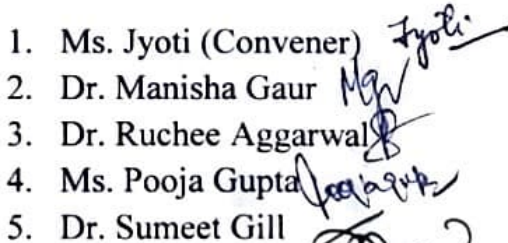 1. Ms. Jyoti (Convener) Jyoti
2. Dr. Manisha Gaur
3. Dr. Ruchee Aggarwal
4. Ms. Pooja Gupta Poojagupta
5. Dr. Sumeet Gill